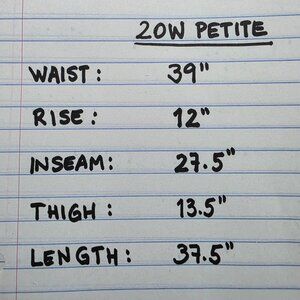 20W PETITE
WAIST: 39"
RISE: 12"
INSEAM: 27.5"
THIGH: 13.5"
LENGTH: 37.5"